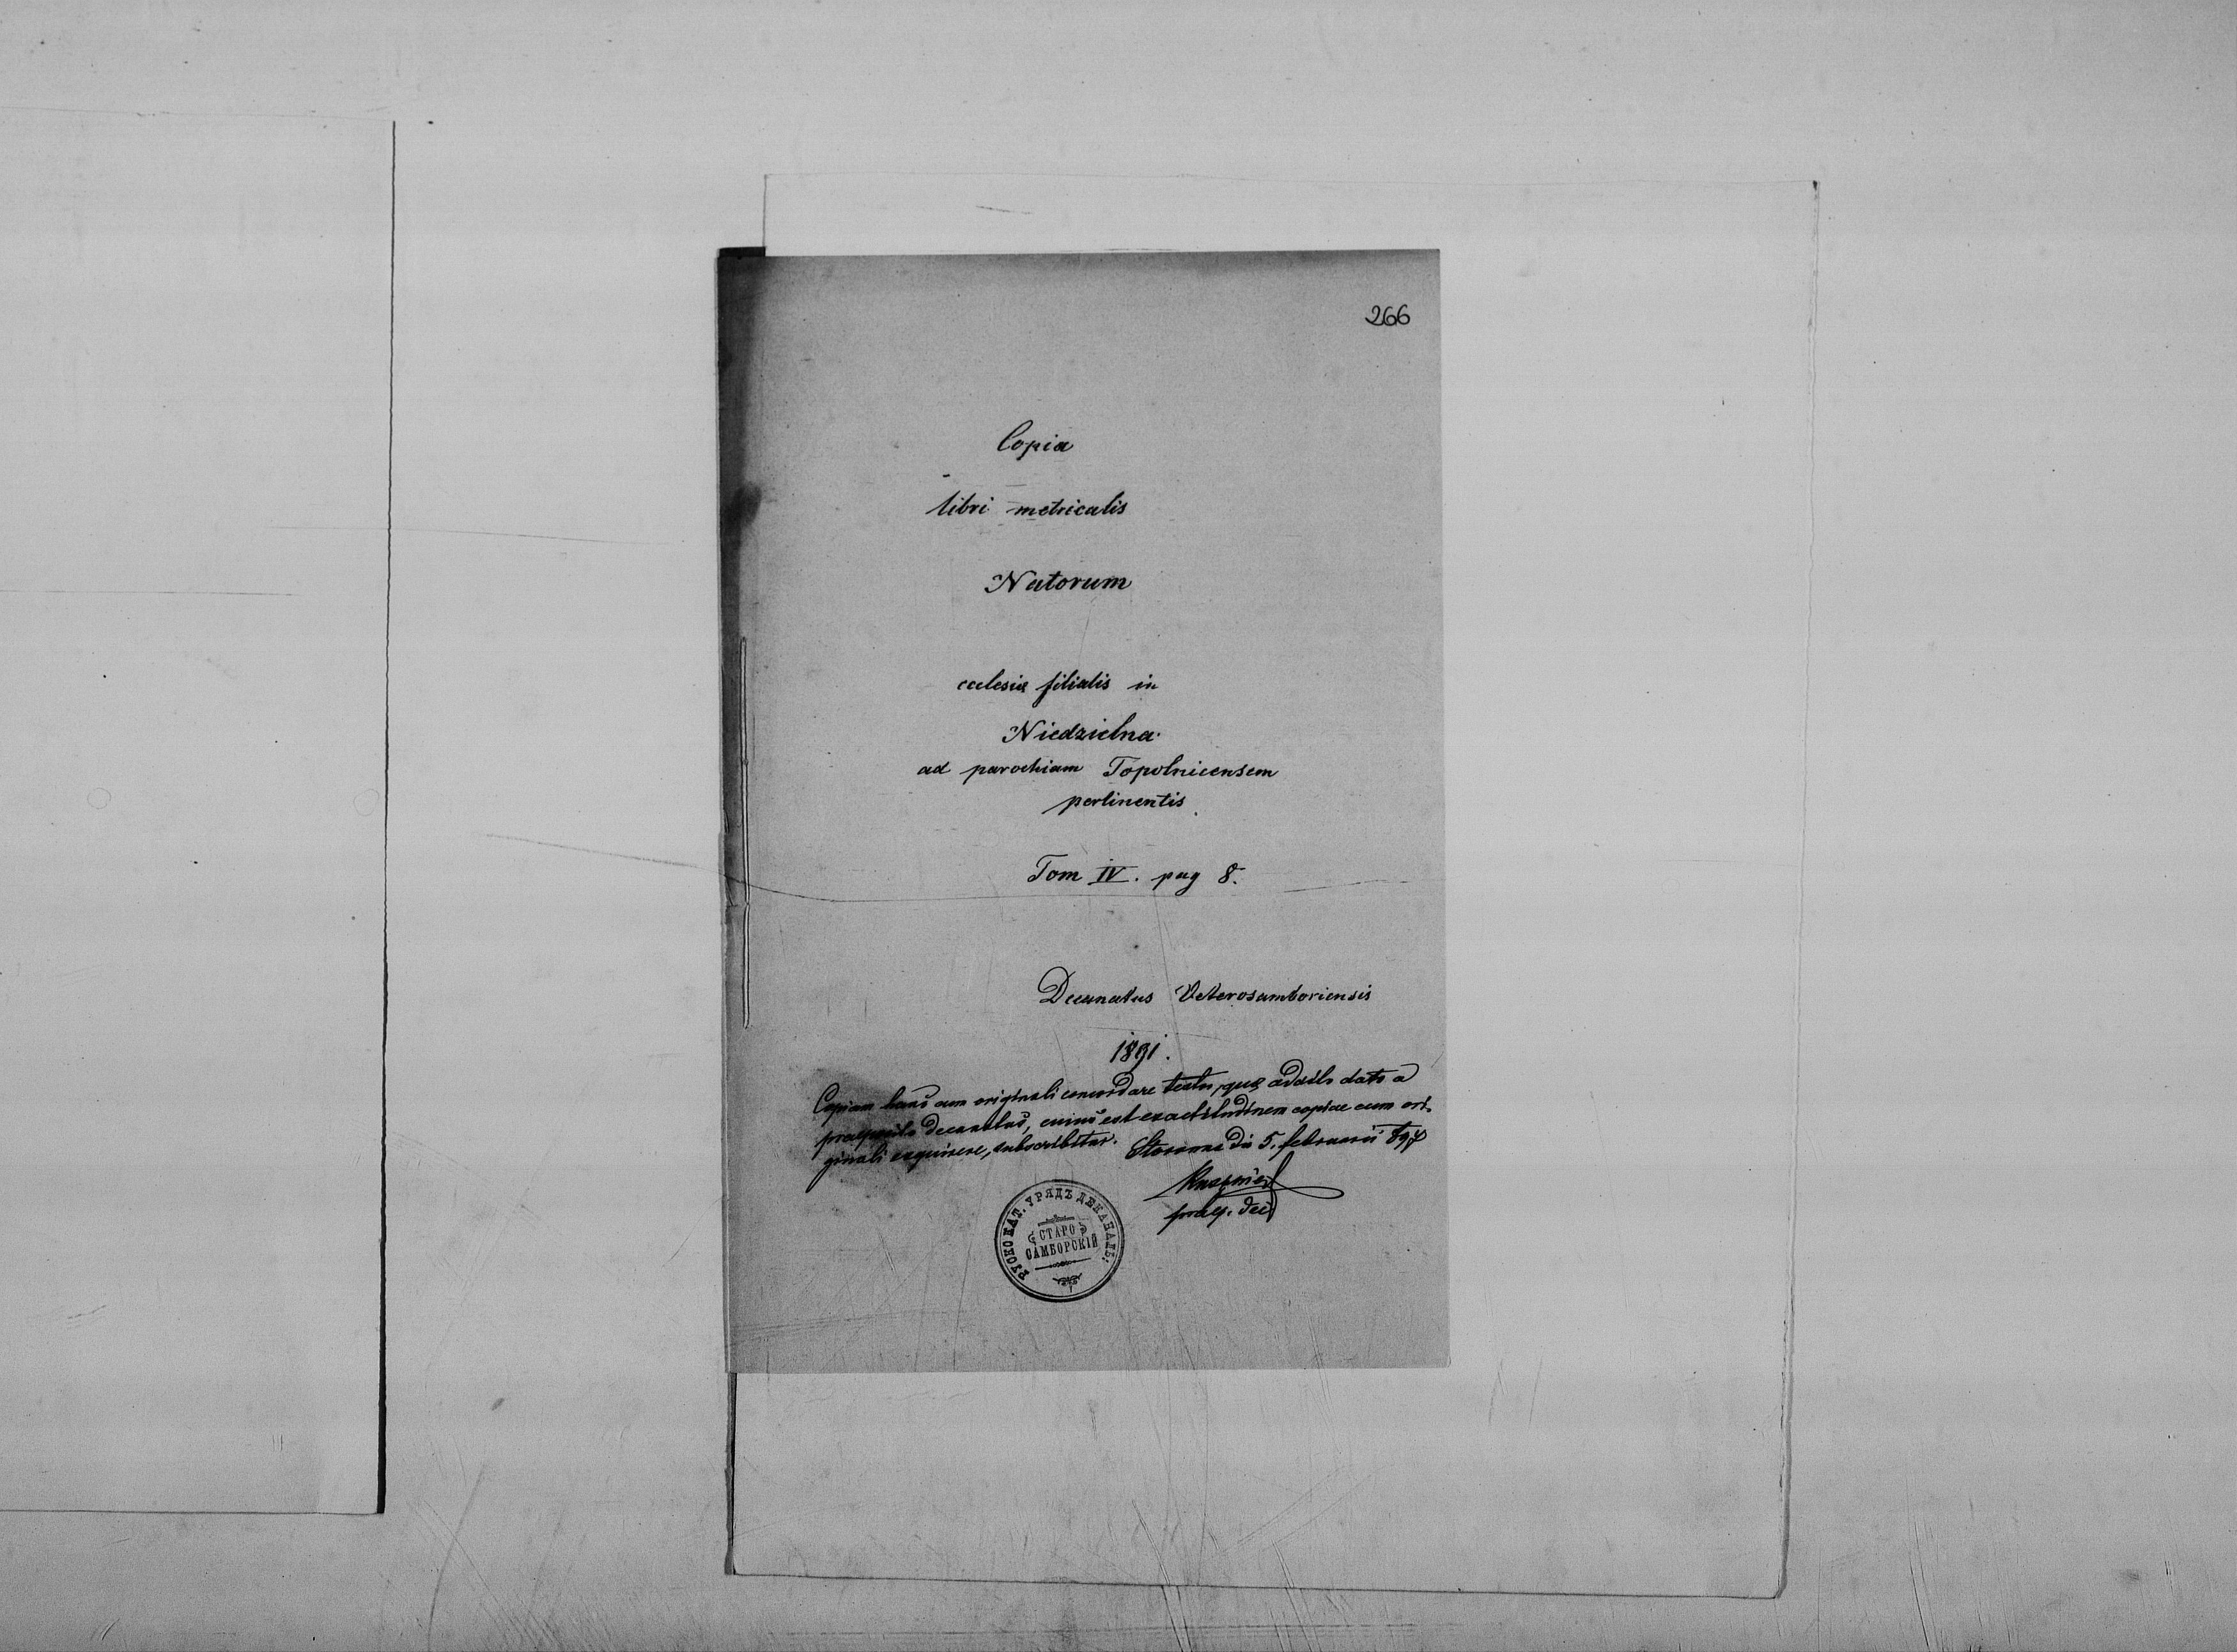 266
Copia
libri metricalis
Natorum
ecclesiæ filialis in
Niedzielna
ad parochiam Topolnicensem
pertinentis.
Tom IV. pag 8.
Decanatus Veterosamboriensis
1891.
Copiam hanc cum originali concordare testor, quæ dato a
decanatus, est exactitudinem copiae cum ori-
ginali exquirere, subscribitur. die 5. februarii 897
РУСКО КАТ. УРЯДЪ ДЕКАНАЛЬ.
СТАРО
САМБОРСКІЙ